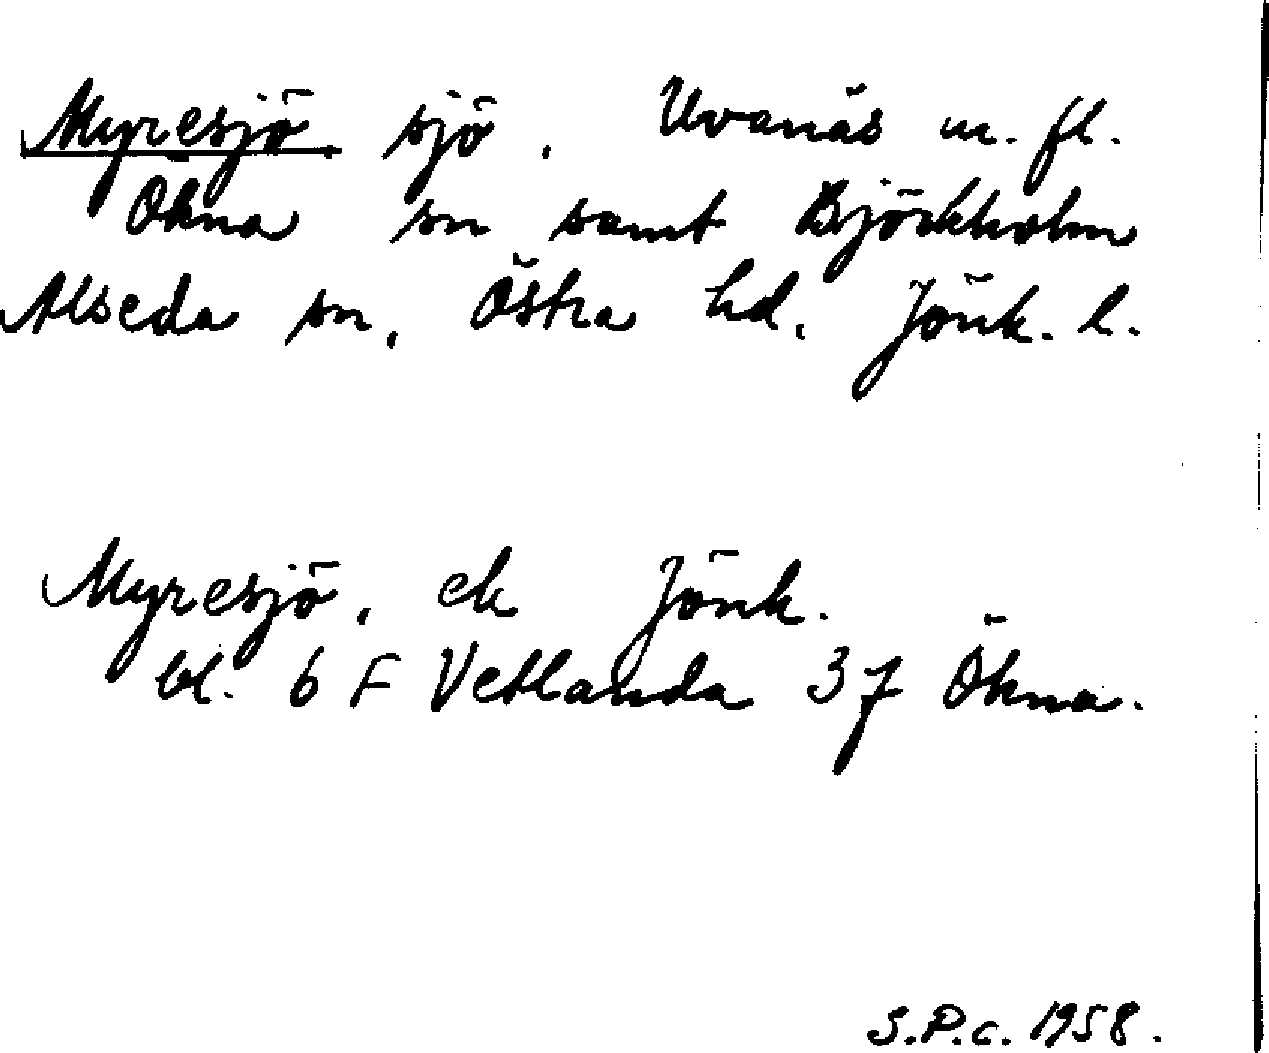 Myresjö sjö. Uvanäs m. fl.
Ökna sn samt Björkholm
Alseda sn, Östra hd, Jönk. l.
Myresjö, ek Jönk.
bl. 6 F Vetlanda 3 f Ökna.
S.P.c. 1958.